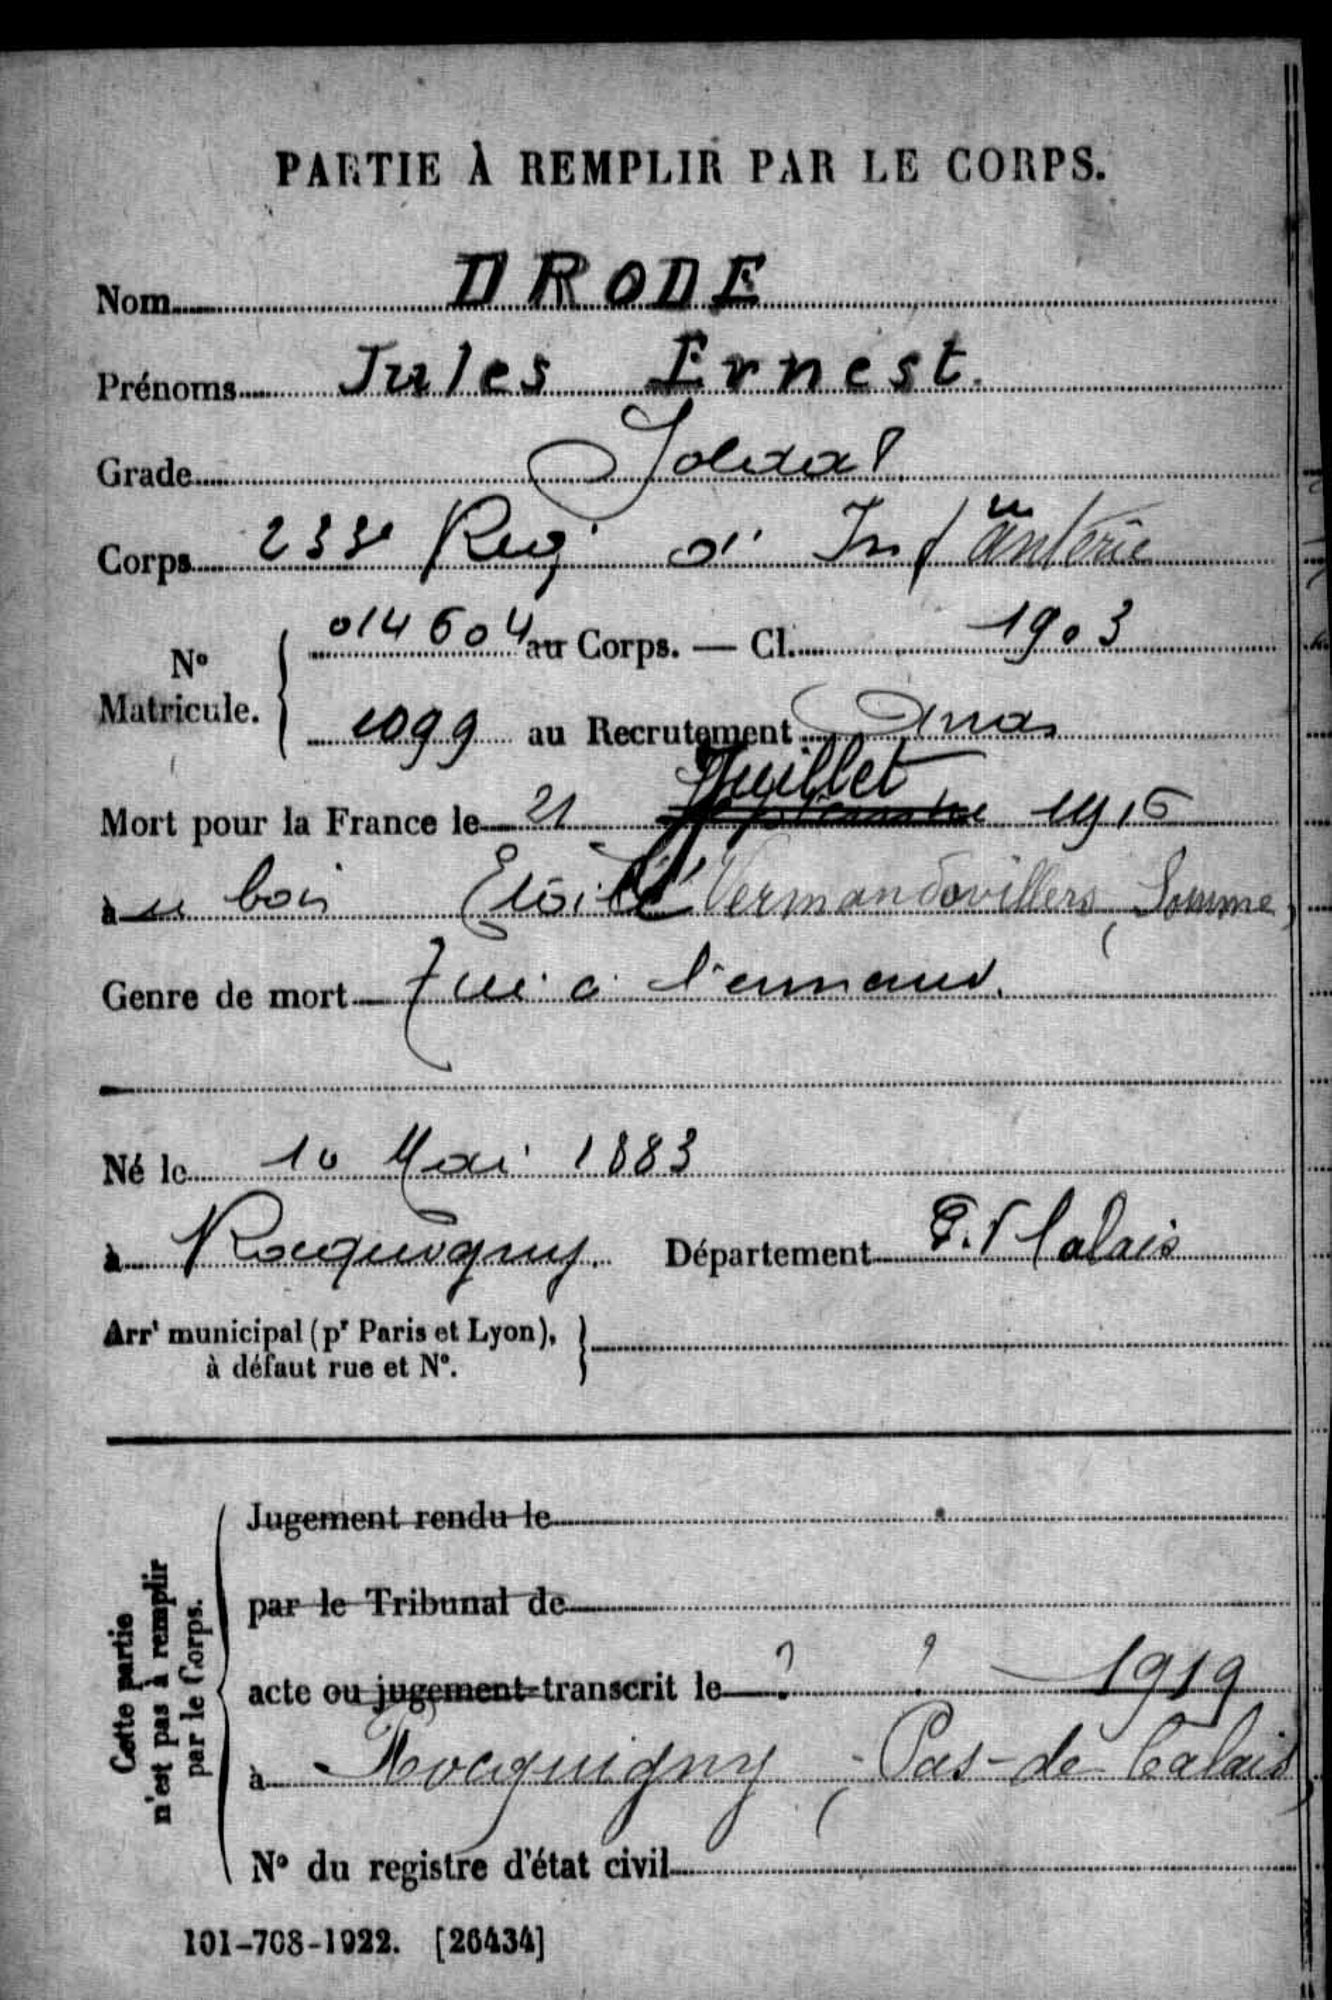 PARTIE À REMPLIR PAR LE CORPS.
Nom DRODE
Prénoms Jules Ernest.
Grade Soldat
Corps 233e Reg d' Infanterie
No Matricule. 014604 au Corps. — Cl. 1903
1099 au Recrutement Arras
Mort pour la France le 21 Juillet 1916
à u bois Etoilé Vermandovillers, Somme
Genre de mort Tué à l'ennemi.
Né le 10 Mai 1883
à Rocquigny. Département P. d Calais
Arrt municipal (pr Paris et Lyon),
à défaut rue et No.
Cette partie
n'est pas à remplir
par le Corps.
Jugement rendu le
par le Tribunal de
acte ou jugement transcrit le ? ? 1919
à Rocquigny, Pas-de Calais
No du registre d'état civil
101-708-1922. [26434]